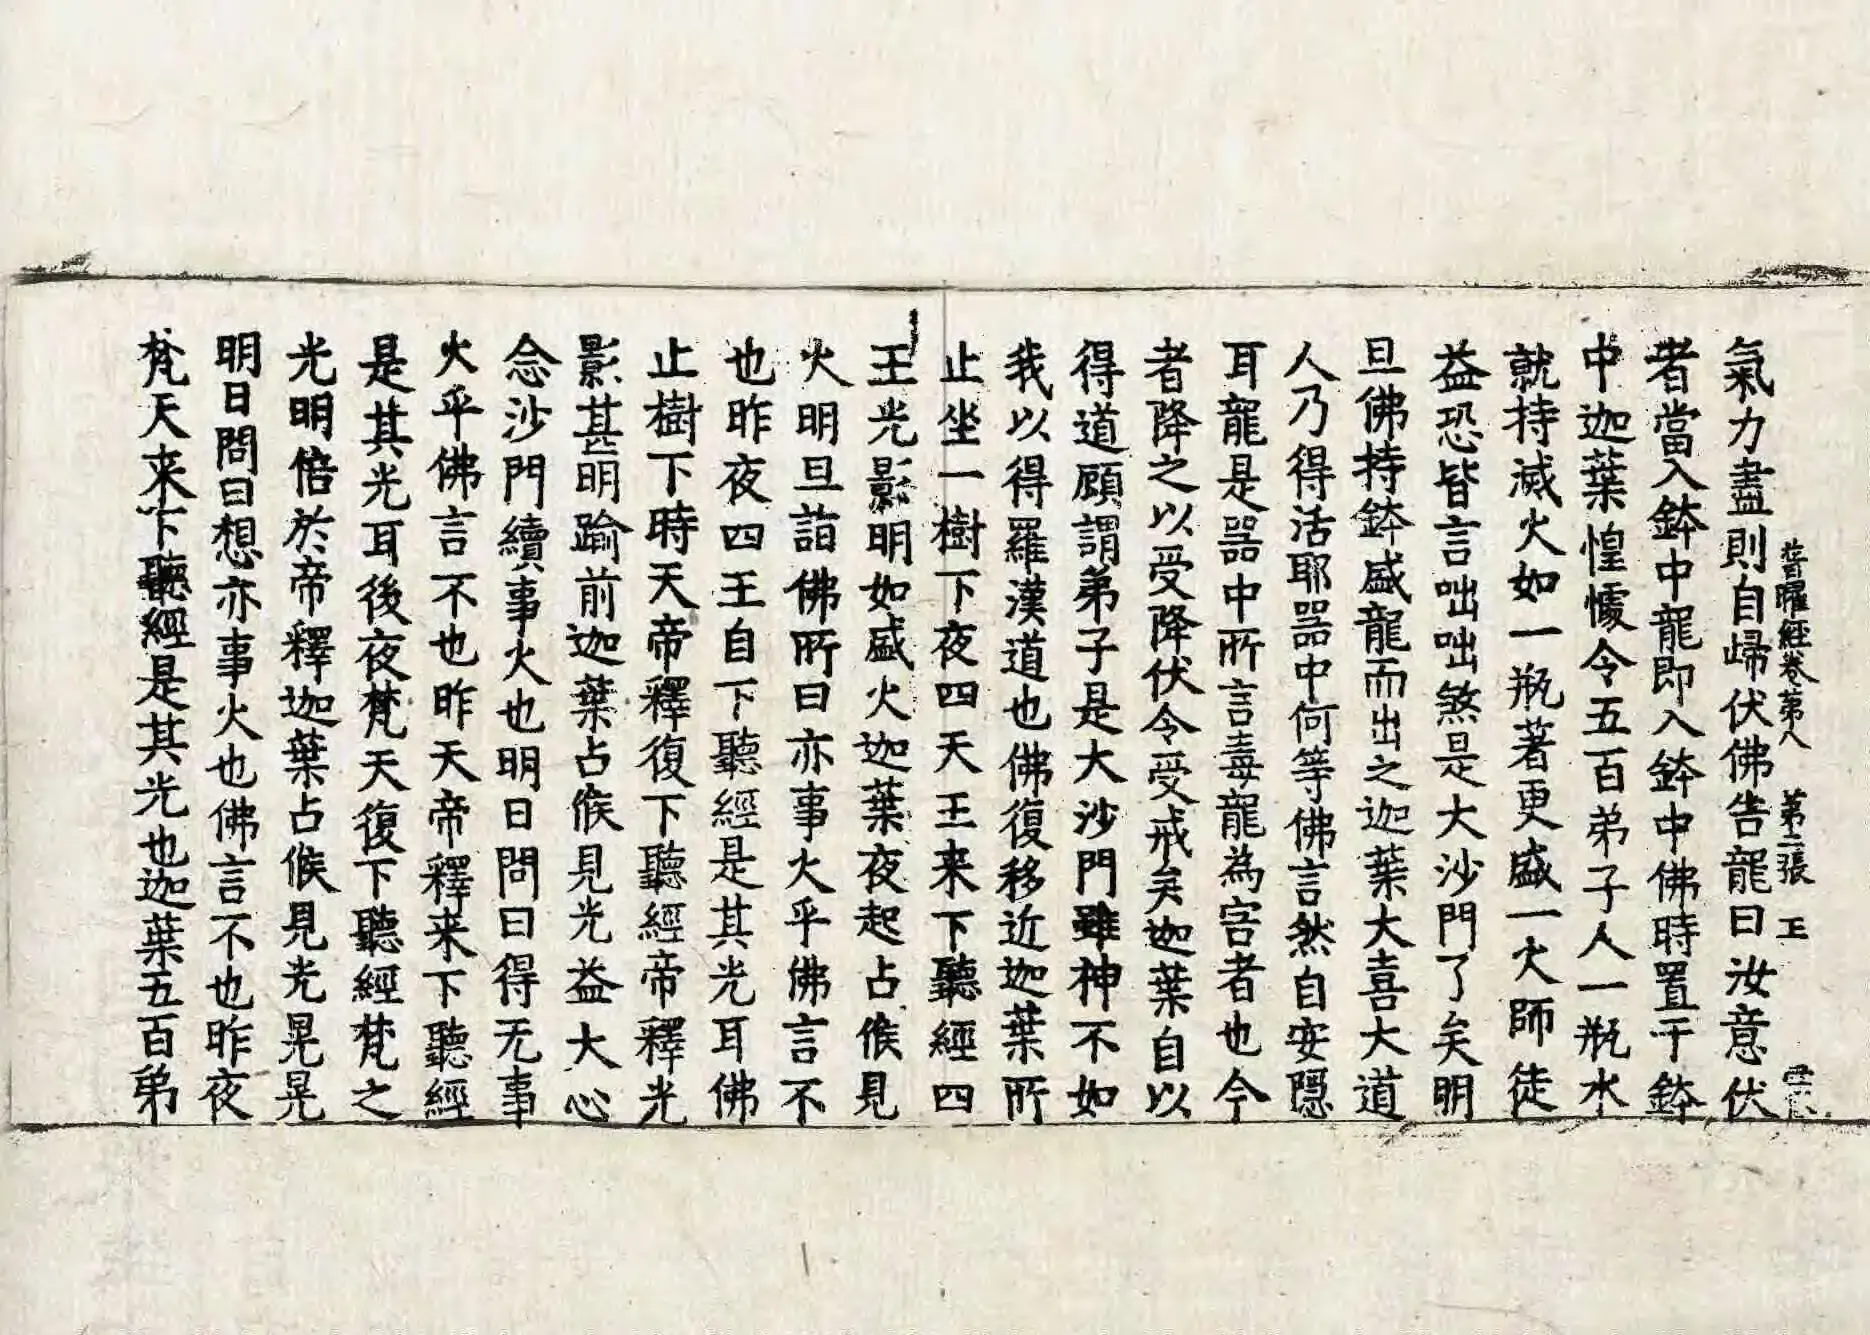 普曜經卷第八 第三張 正
氣力盡則自歸伏佛告龍曰汝意伏
者當入鉢中龍即入鉢中佛時置于鉢
中迦葉惶懅令五百弟子人一瓶水
就持滅火如一瓶著更盛一火師徒
益恐皆言咄咄煞是大沙門了矣明
旦佛持鉢盛龍而出之迦葉大喜大道
人乃得活耶噐中何等佛言然自安隱
耳龍是噐中所言毒龍為害者也今
者降之以受降伏令受戒矣迦葉自以
得道顧謂弟子是大沙門雖神不如
我以得羅漢道也佛復移近迦葉所
止坐一樹下夜四天王来下聽經四
王光影明如盛火迦葉夜起占候見
火明旦詣佛所曰亦事火乎佛言不
也昨夜四王自下聽經是其光耳佛
止樹下時天帝釋復下聽經帝釋光
影甚明踰前迦葉占候見光益大心
念沙門續事火也明日問曰得无事
火乎佛言不也昨天帝釋来下聽經
是其光耳後夜梵天復下聽經梵之
光明倍於帝釋迦葉占候見光晃晃
明日問曰想亦事火也佛言不也昨夜
梵天来下聽經是其光也迦葉五百弟